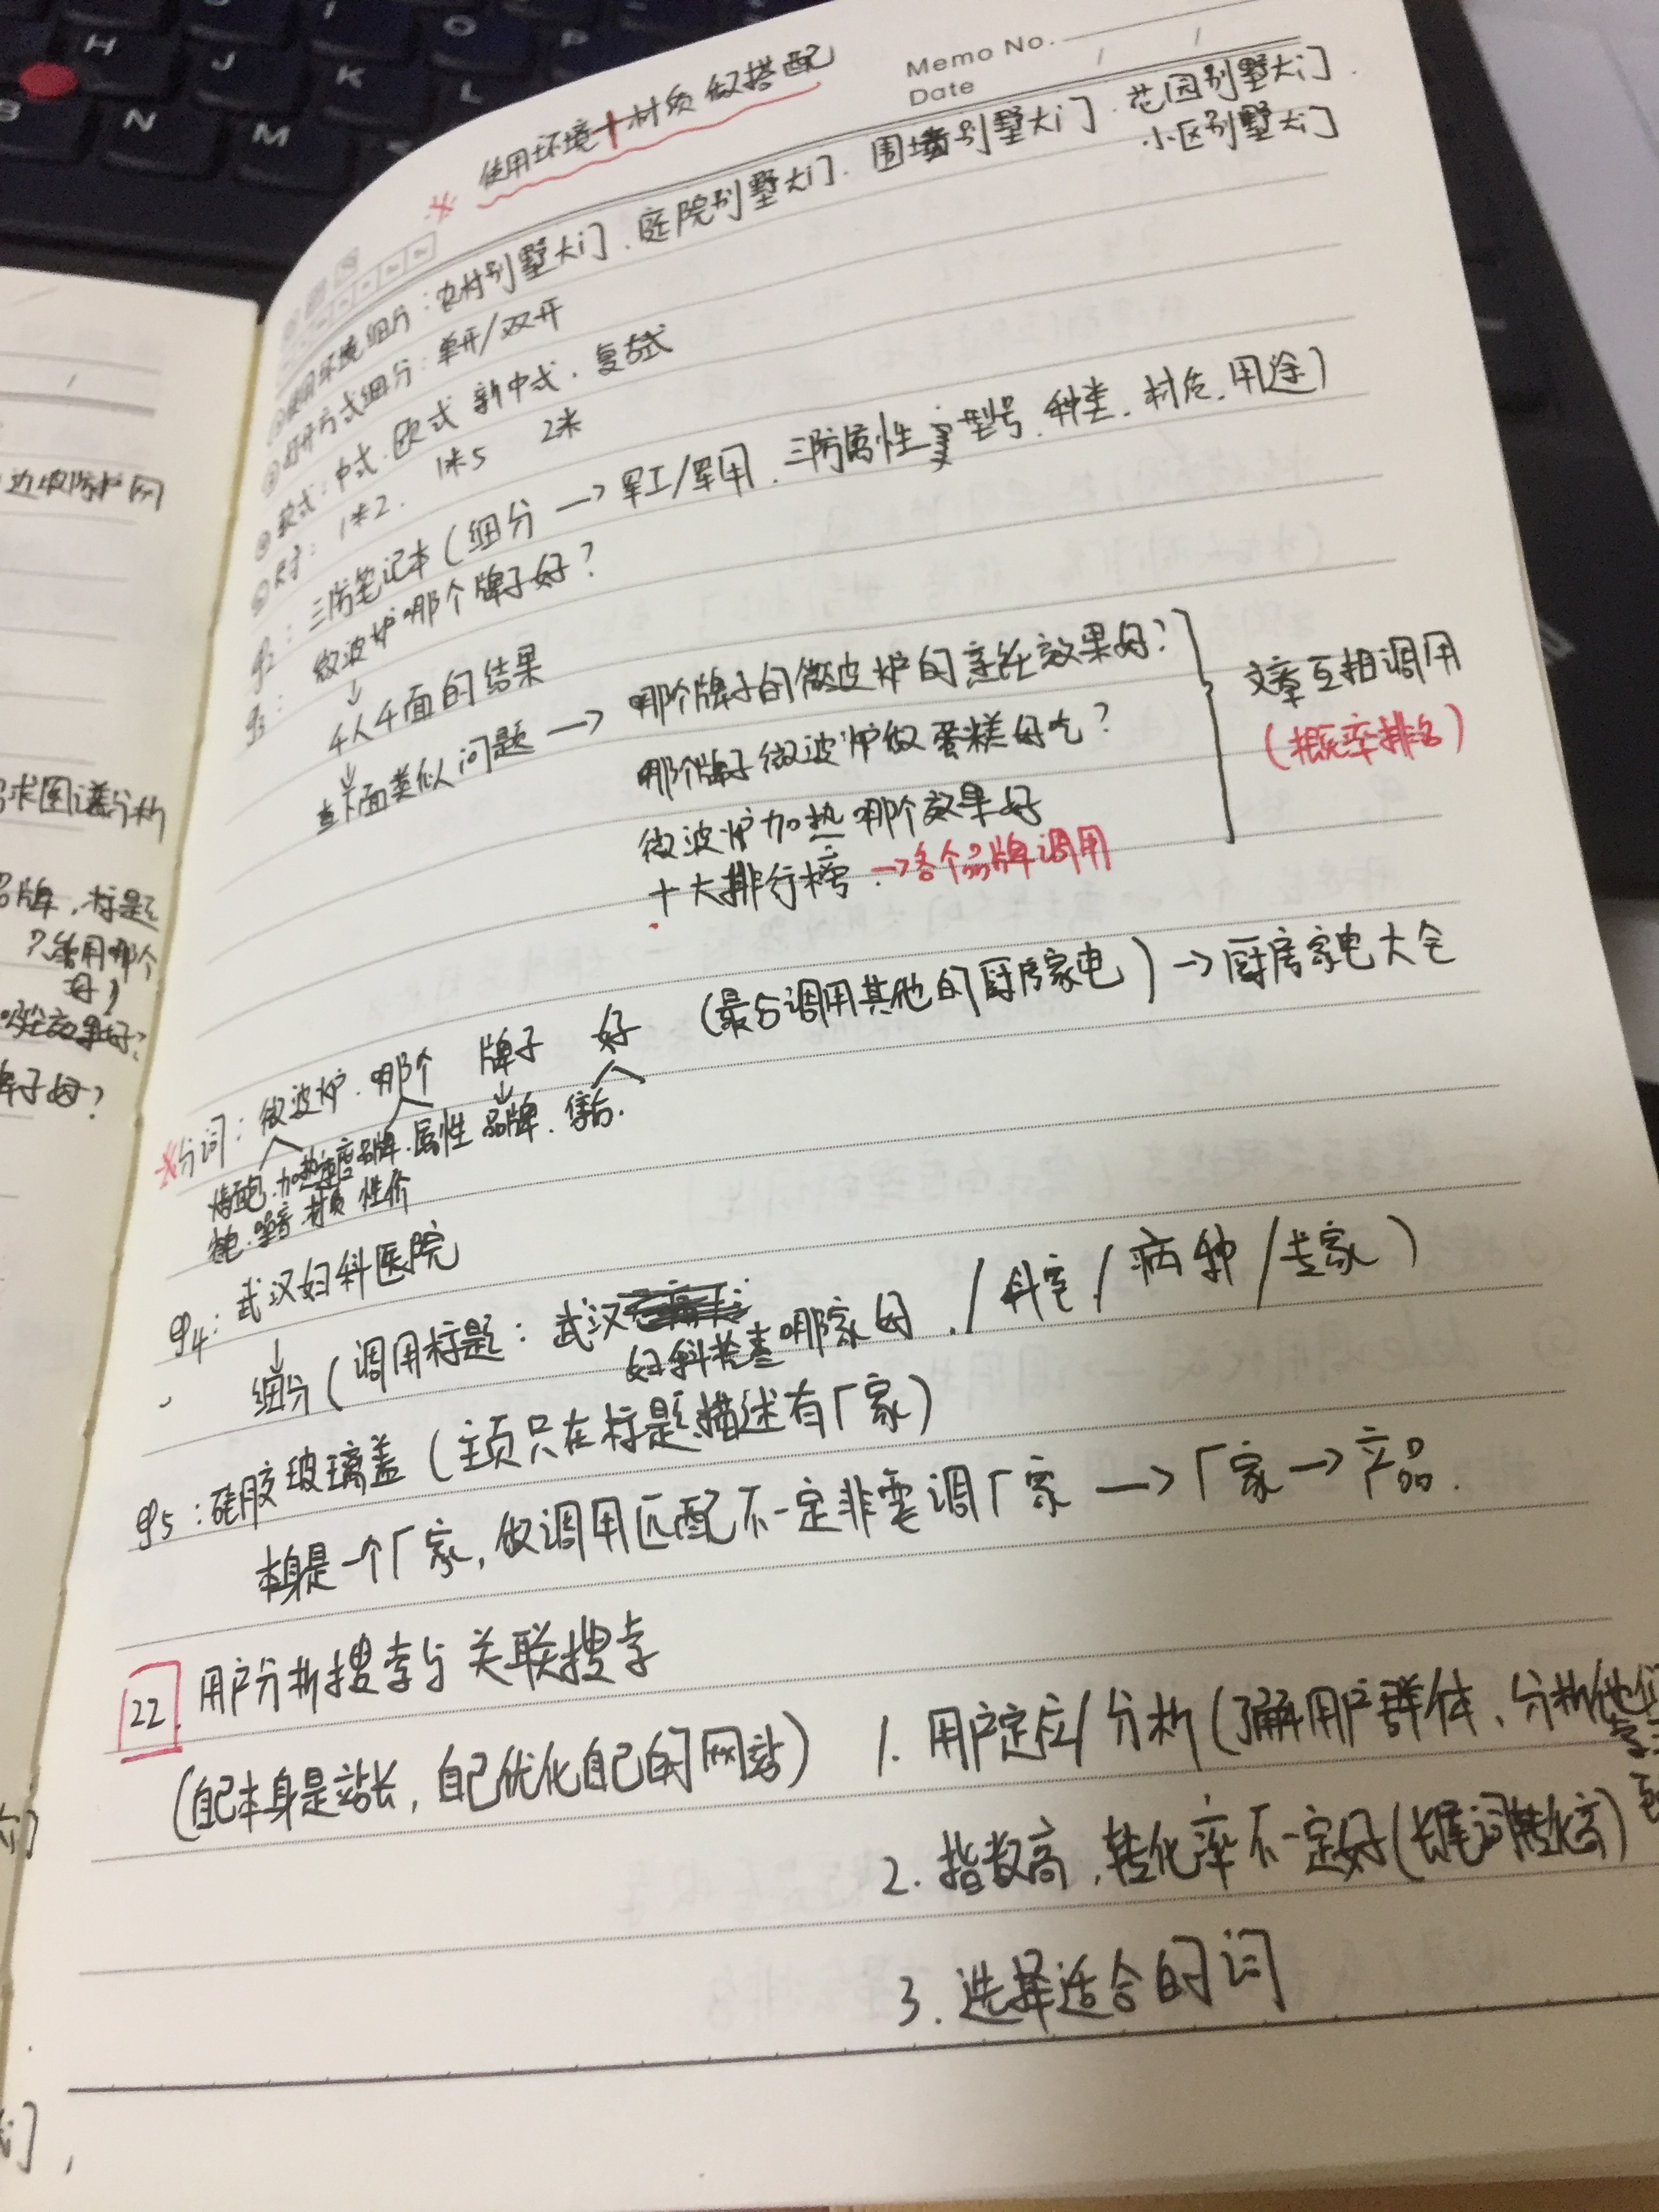 ※ 使用环境+材质 做搭配
Memo No.
Date / /
使用环境细分:农村别墅大门、庭院别墅大门、围墙别墅大门、花园别墅大门、
小区别墅大门
打开方式细分:单开/双开
款式:中式、欧式 新中式、复古式
尺寸: 1米2、 1米5 2米
q2:三防笔记本(细分→军工/军用、三防属性、型号、种类、材质、用途)
q3:微波炉哪个牌子好?
↓
千人千面的结果
↓
查下面类似问题→哪个牌子的微波炉的烹饪效果好?
哪个牌子微波炉做蛋糕好吃?
微波炉加热哪个效果好
十大排行榜→各个品牌调用
文章互相调用
(概率排名)
※分词:微波炉、哪个 牌子 好 (最后调用其他的厨房家电)→厨房家电大全
烤面包、加热速度 品牌、属性 品牌、售后、
噪音、材质 性价
q4:武汉妇科医院
↓
细分(调用标题:武汉妇科检查哪家好、/科室/病种/专家)
q5:硅胶玻璃盖(主页只在标题、描述有厂家)
本身是一个厂家,做调用匹配不一定非要调厂家→厂家→产品.
22.用户分析搜索与关联搜索
(自己本身是站长,自己优化自己的网站)
1.用户定应/分析(了解用户群体、分析他们
2.指数高,转化率不一定好(长尾词转化高)
3.选择适合的词
边坡防护网
需求图谱分析
品牌,标题
哪个
好)
效果好?
牌子好?